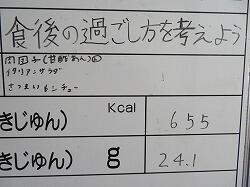 食後の過ごし方を考えよう
肉団子(甘酢あん)②
イタリアンサラダ
さつまいもシチュー
Kcal
きじゅん)
655
きじゅん)
g
24.1